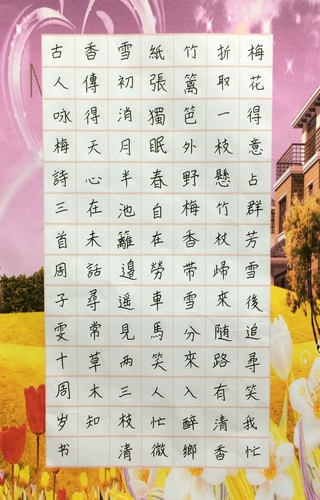 梅花得意占群芳雪後追尋笑我忙
折取一枝懸竹杖歸來随路有清香
竹篱笆外野梅香带雪分來入醉鄉
紙張獨眠春自在勞車馬笑人忙微
雪初消月半池籬邊遥見两三枝清
香傳得天心在未話尋常草木知
古人咏梅詩三首周子雯十周岁书